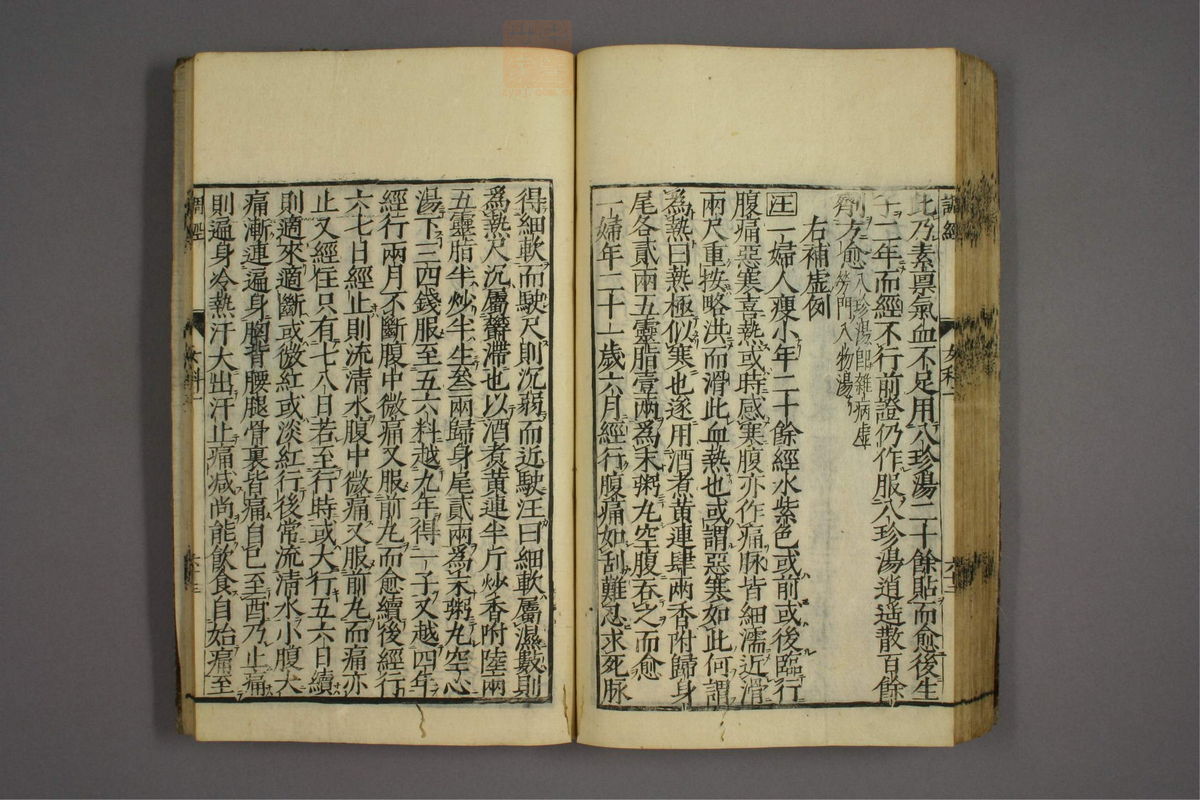 調經
女科一
六三
此乃素禀氣血不足用八珍湯二十餘貼而愈後生
子二年而經不行前證仍作服八珍湯逍遥散百餘
劑方愈八珍湯即雜病虛
勞門八物湯
右補虛例
汪一婦人瘦小年二十餘經水紫色或前或後臨行
腹痛惡寒喜熱或時感寒腹亦作痛脉皆細濡近滑
兩尺重按略洪而滑此血熱也或謂惡寒如此何謂
爲熱曰熱極似寒也遂用酒煮黄連肆兩香附歸身
尾各貳兩五靈脂壹兩爲末粥丸空腹吞之而愈
一婦年二十一歲六月經行腹痛如刮難忍求死脉
得細軟而駛尺則沉弱而近駛汪曰細軟屬濕數則
爲熱尺沉屬欝滯也以酒煮黄連半斤炒香附陸兩
五靈脂半炒半生叁兩歸身尾貳兩爲末粥丸空心
湯下三四錢服至五六料越九年得一子又越四年
經行兩月不斷腹中微痛又服前丸而愈續後經行
六七日經止則流清水腹中微痛又服前丸而痛亦
止又經住只有七八日若至行時或大行五六日續
則適來適斷或微紅或淡紅行後常流清水小腹大
痛漸連遍身胸背腰腿骨裏皆痛自巳至酉乃止痛
則遍身冷熱汗大出汗止痛减尚能飲食自始痛至
調經
女科一
六三